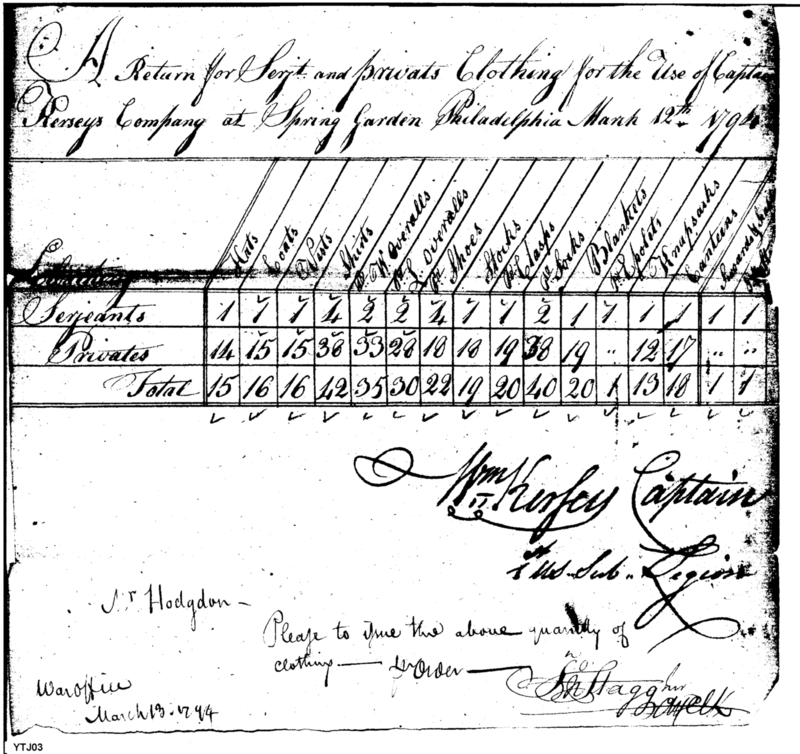 A Return for Serjt. and privats Clothing for the Use of Captain
Kerseys Company at Spring Garden Philadelphia March 12th 1794
Hats Coats Vests Shirts W. Overalls L. Overalls Shoes Stocks Clasps Socks Blankets Epolets Knapsacks Canteens
Clothing
Serjeants 1 1 1 4 2 2 4 1 1 2 1 1 1 1 1 1
Privates 14 15 15 38 33 28 18 18 19 38 19 " 12 17 " "
Total 15 16 16 42 35 30 22 19 20 40 20 1 13 18 1 1
Wm Kersey Captain
1st US Sub Legion
Mr Hodgdon —
Please to issue the above quantity of
clothing — Order —
Jno Stagg Junr
War Office
March 13. 1794
YTJ03